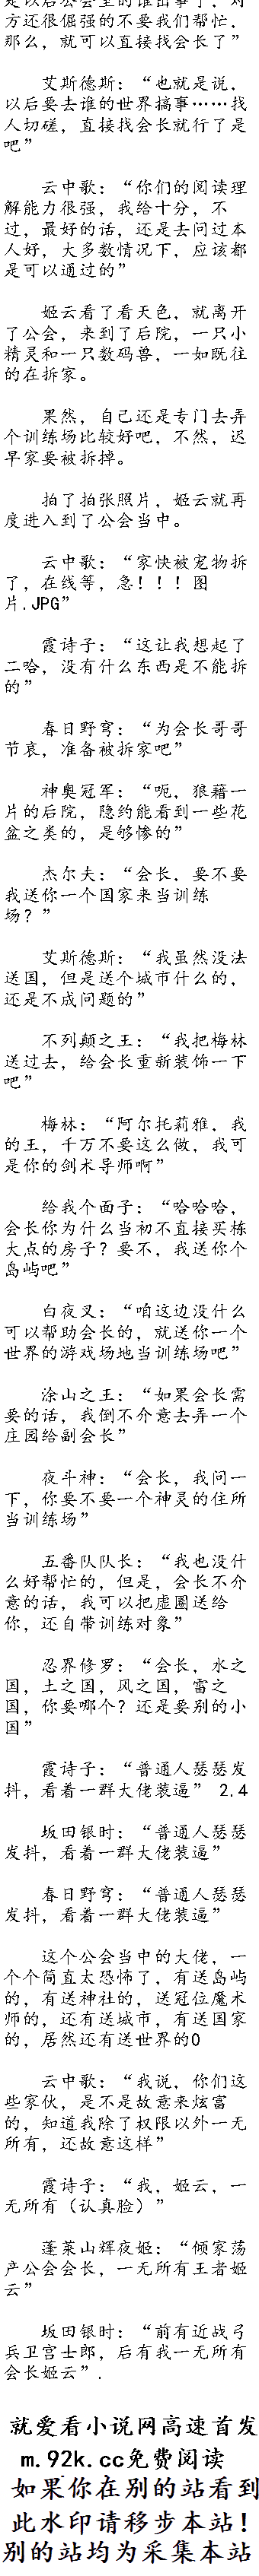 是以后公会里的谁出事了，对
方还很倔强的不要我们帮忙，
那么，就可以直接找会长了”
艾斯德斯：“也就是说，
以后要去谁的世界搞事……找
人切磋，直接找会长就行了是
吧”
云中歌：“你们的阅读理
解能力很强，我给十分，不
过，最好的话，还是去问过本
人好，大多数情况下，应该都
是可以通过的”
姬云看了看天色，就离开
了公会，来到了后院，一只小
精灵和一只数码兽，一如既往
的在拆家。
果然，自己还是专门去弄
个训练场比较好吧，不然，迟
早家要被拆掉。
拍了拍张照片，姬云就再
度进入到了公会当中。
云中歌：“家快被宠物拆
了，在线等，急！！！图
片.JPG”
霞诗子：“这让我想起了
二哈，没有什么东西是不能拆
的”
春日野穹：“为会长哥哥
节哀，准备被拆家吧”
神奥冠军：“呃，狼藉一
片的后院，隐约能看到一些花
盆之类的，是够惨的”
杰尔夫：“会长，要不要
我送你一个国家来当训练
场？”
艾斯德斯：“我虽然没法
送国，但是送个城市什么的，
还是不成问题的”
不列颠之王：“我把梅林
送过去，给会长重新装饰一下
吧”
梅林：“阿尔托莉雅，我
的王，千万不要这么做，我可
是你的剑术导师啊”
给我个面子：“哈哈哈，
会长你为什么当初不直接买栋
大点的房子？要不，我送你个
岛屿吧”
白夜叉：“咱这边没什么
可以帮助会长的，就送你一个
世界的游戏场地当训练场吧”
涂山之王：“如果会长需
要的话，我倒不介意去弄一个
庄园给副会长”
夜斗神：“会长，我问一
下，你要不要一个神灵的住所
当训练场”
五番队队长：“我也没什
么好帮忙的，但是，会长不介
意的话，我可以把虚圈送给
你，还自带训练对象”
忍界修罗：“会长，水之
国，土之国，风之国，雷之
国，你要哪个？还是要别的小
国”
霞诗子：“普通人瑟瑟发
抖，看着一群大佬装逼” 2.4
坂田银时：“普通人瑟瑟
发抖，看着一群大佬装逼”
春日野穹：“普通人瑟瑟
发抖，看着一群大佬装逼”
这个公会当中的大佬，一
个个简直太恐怖了，有送岛屿
的，有送神社的，送冠位魔术
师的，还有送城市，有送国家
的，居然还有送世界的0
云中歌：“我说，你们这
些家伙，是不是故意来炫富
的，知道我除了权限以外一无
所有，还故意这样”
霞诗子：“我，姬云，一
无所有（认真脸）”
蓬莱山辉夜姬：“倾家荡
产公会会长，一无所有王者姬
云”
坂田银时：“前有近战弓
兵卫宫士郎，后有我一无所有
会长姬云”.
就爱看小说网高速首发
m.92k.cc免费阅读
如果你在别的站看到
此水印请移步本站！
别的站均为采集本站